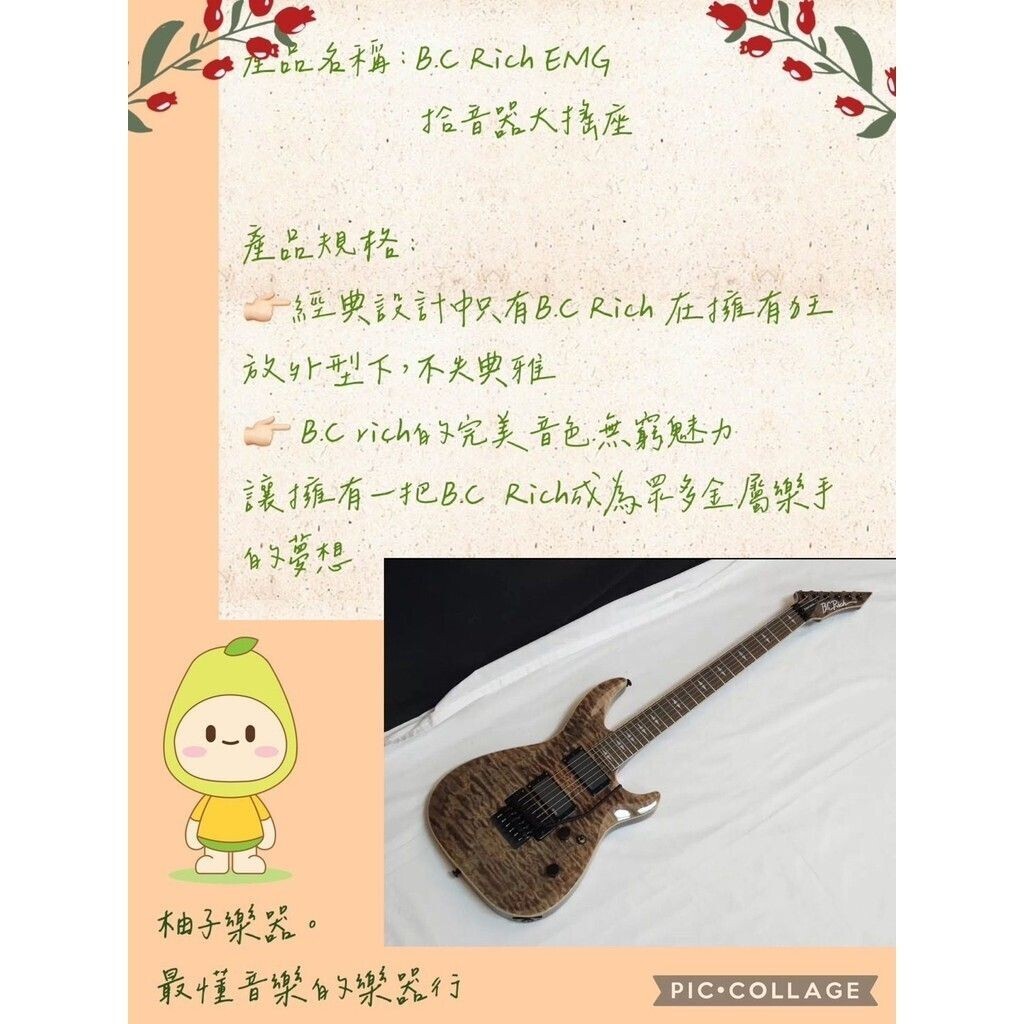 產品名稱：B.C Rich EMG
拾音器大搖座
產品規格：
👉🏻經典設計中只有B.C Rich 在擁有狂
放外型下，不失典雅
👉🏻 B.C rich的完美音色.無窮魅力
讓擁有一把B.C Rich成為眾多金屬樂手
的夢想
B.C.Rich
柚子樂器。
最懂音樂的樂器行
PIC•COLLAGE